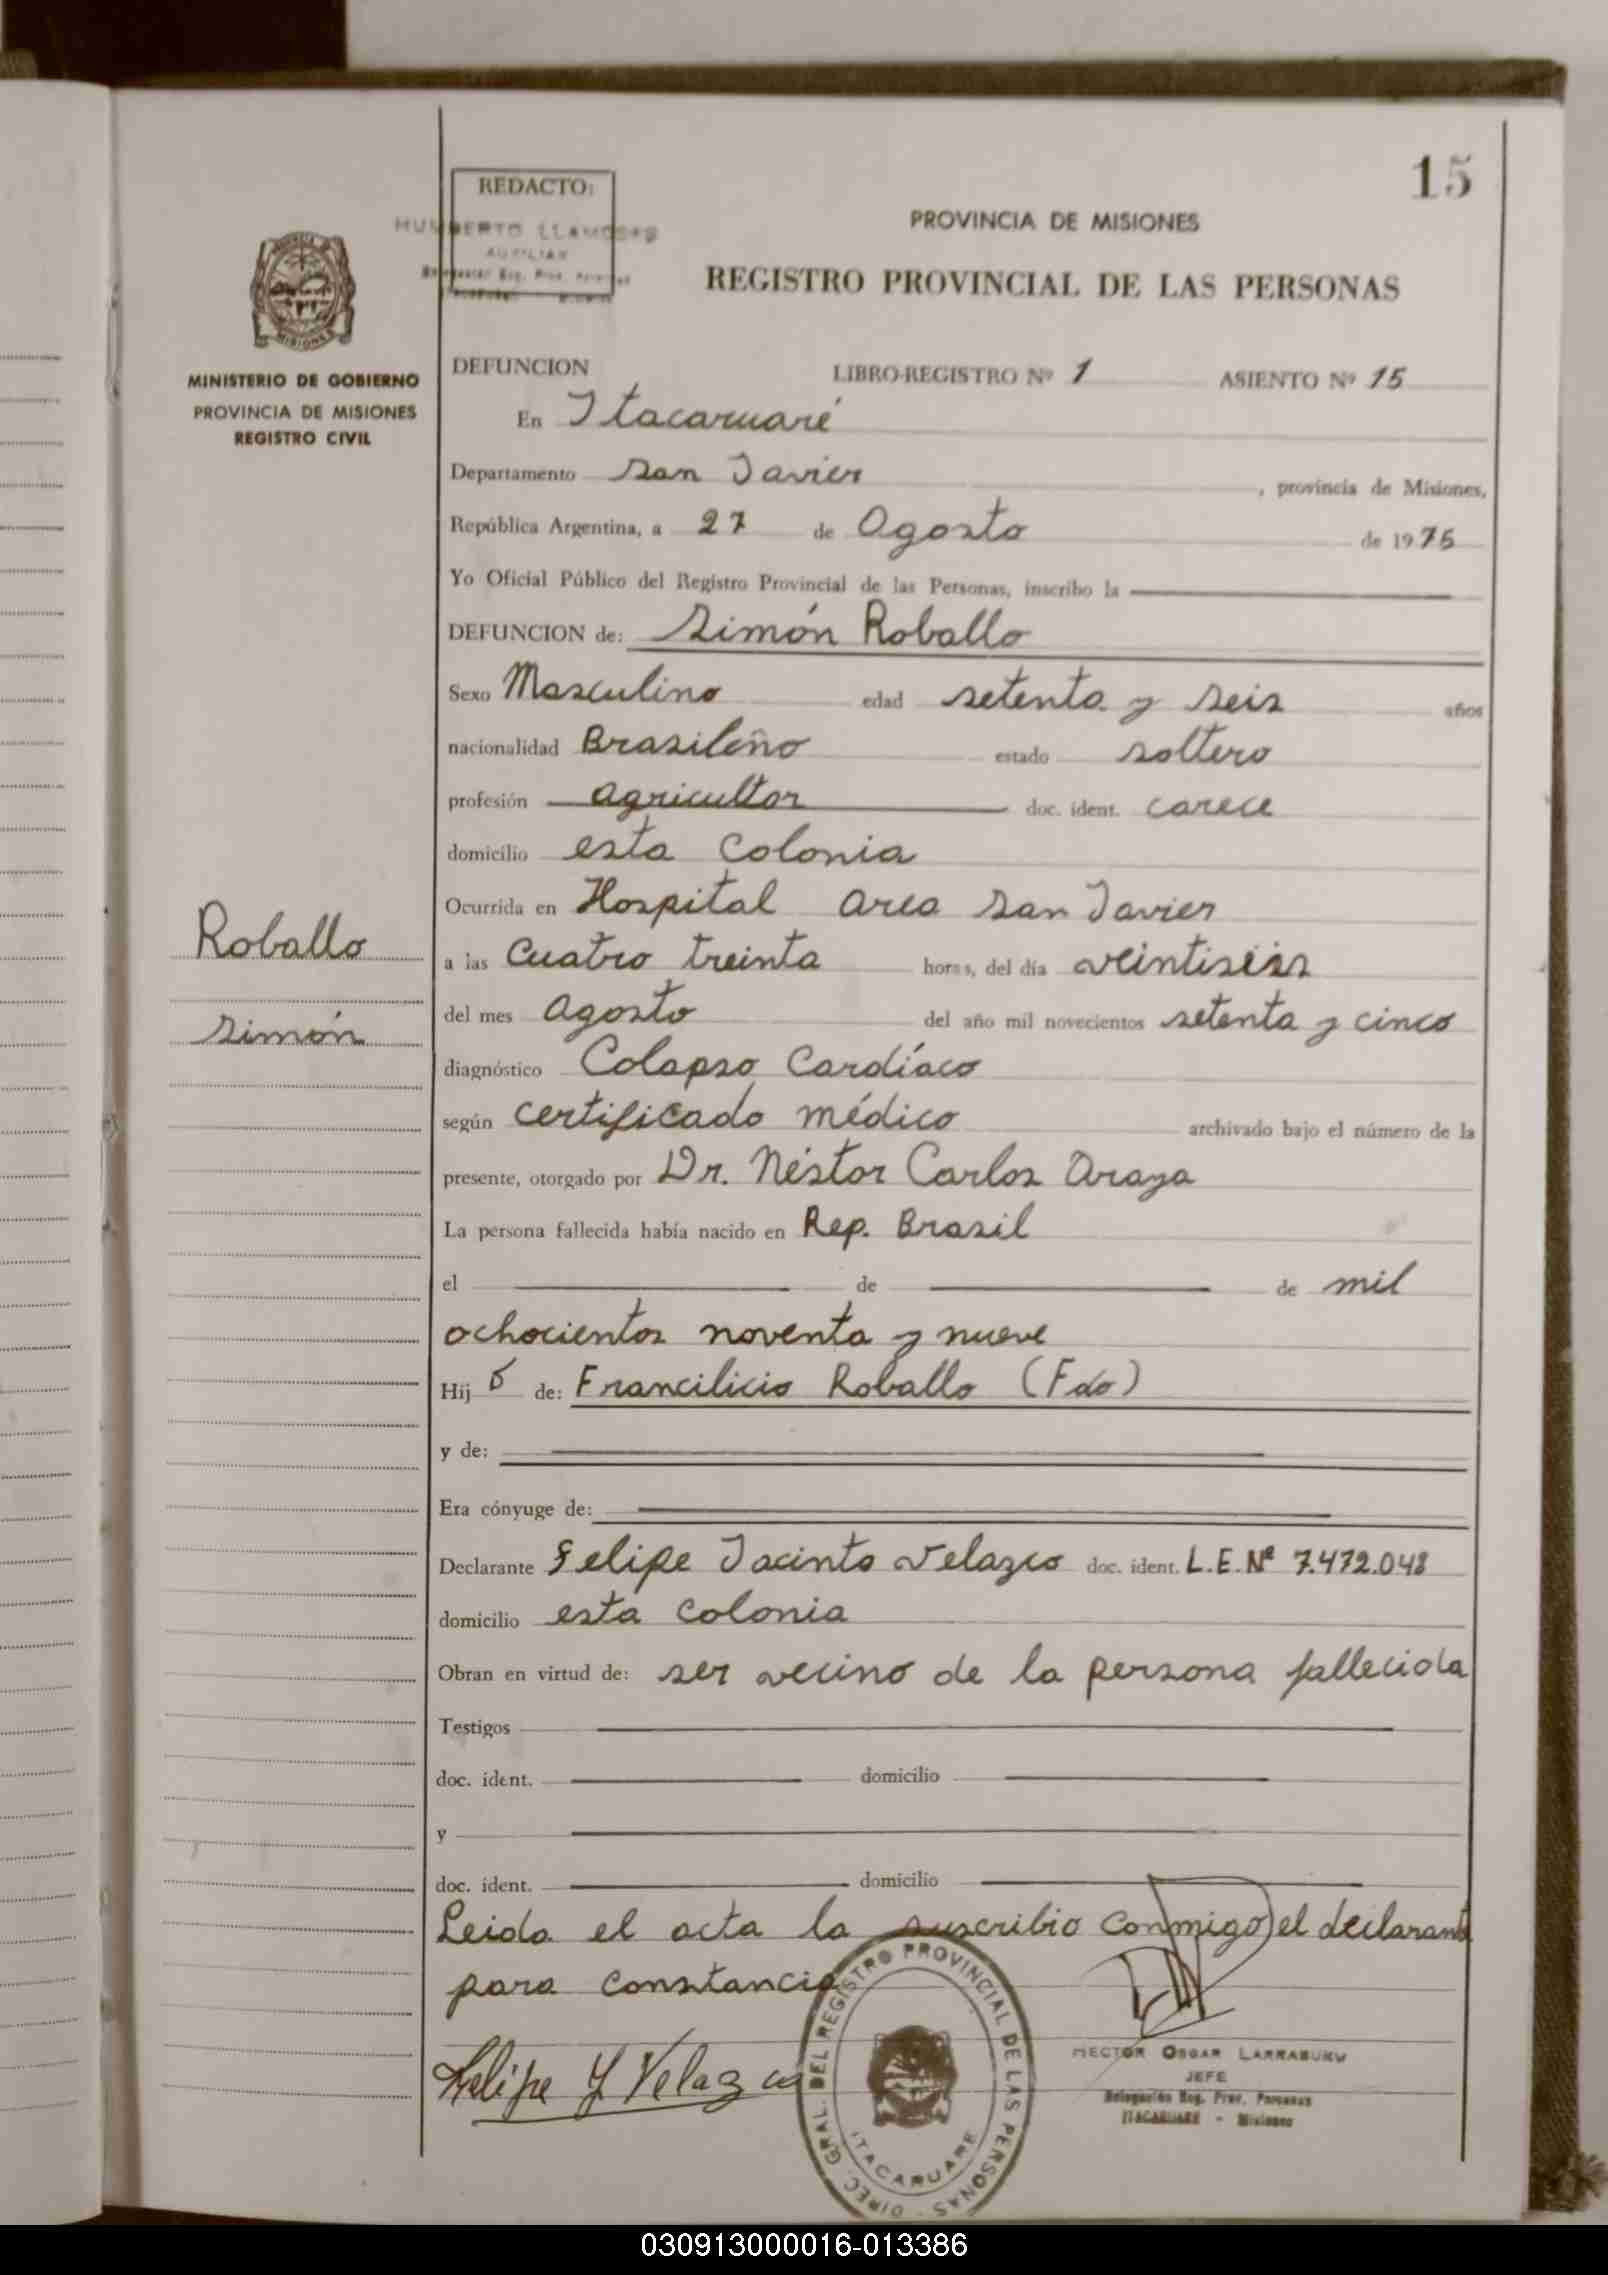 15
REDACTO:
HUMBERTO LLAMOSAS
AUXILIAR
PROVINCIA DE MISIONES
REGISTRO PROVINCIAL DE LAS PERSONAS
MISIONES
MINISTERIO DE GOBIERNO
PROVINCIA DE MISIONES
REGISTRO CIVIL
DEFUNCION LIBRO-REGISTRO Nº 1 ASIENTO Nº 15
En Itacaruaré
Departamento San Javier , provincia de Misiones,
República Argentina, a 27 de Agosto de 1975
Yo Oficial Público del Registro Provincial de las Personas, inscribo la
DEFUNCION de: Simón Roballo
Sexo Masculino edad setenta y seis años
nacionalidad Brasileño estado soltero
profesión agricultor doc. ident. carece
domicilio esta Colonia
Ocurrida en Hospital Area San Javier
a las Cuatro treinta horas, del día veintiséis
del mes Agosto del año mil novecientos setenta y cinco
diagnóstico Colapso Cardíaco
según certificado médico archivado bajo el número de la
presente, otorgado por Dr. Néstor Carlos Araya
La persona fallecida había nacido en Rep. Brasil
el de de mil
ochocientos noventa y nueve
Hij o de: Francilicio Roballo (Fdo)
y de:
Era cónyuge de:
Declarante Felipe Jacinto Velazco doc. ident. L.E. Nº 7.472.048
domicilio esta Colonia
Obran en virtud de: ser vecino de la persona fallecida
Testigos
doc. ident. domicilio
y
doc. ident. domicilio
Leida el acta la suscribio conmigo el declarante
para constancia
Roballo
Simón
Felipe Y Velazco
DIREC. GRAL. DEL REGISTRO PROVINCIAL DE LAS PERSONAS
ITACARUARE
HECTOR OSCAR LARRABURU
JEFE
Delegación Reg. Prov. Personas
ITACARUARE - Misiones
030913000016-013386